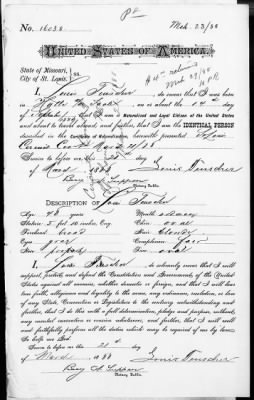 No. 16038
Mch 23/88
UNITED STATES OF AMERICA.
State of Missouri,
City of St. Louis.
I, Louis Tenscher, do swear that I was born
in on or about the 14th day
of that I am a Naturalized and Loyal Citizen of the United States
and about to travel abroad, and further, that I am the IDENTICAL PERSON
described in the Certificate of Naturalization, herewith presented
Sworn to before me this
of March 1888 Louis Tenscher
Notary Public.
DESCRIPTION OF Louis Tenscher
Age: 48 years Mouth:
Stature: 5 feet 10 inches, Eng. Chin: oval
Forehead: Hair:
Eyes: grey Complexion: fair
Nose: Face: oval
I, Louis Tenscher, do solemnly swear that I will
support, protect, and defend the Constitution and Government of the United
States against all enemies, whether domestic or foreign, and that I will bear
true faith, allegiance and loyalty to the same, any ordinance, resolution, or law
of any State, Convention or Legislature to the contrary notwithstanding; and
further, that I do this with a full determination, pledge and purpose, without
any mental reservation or evasion whatsoever, and further, that I will well
and faithfully perform all the duties which may be required of me by law.
So help me God.
Sworn to before me the 21st day
of March 1888 Louis Tenscher
Notary Public.